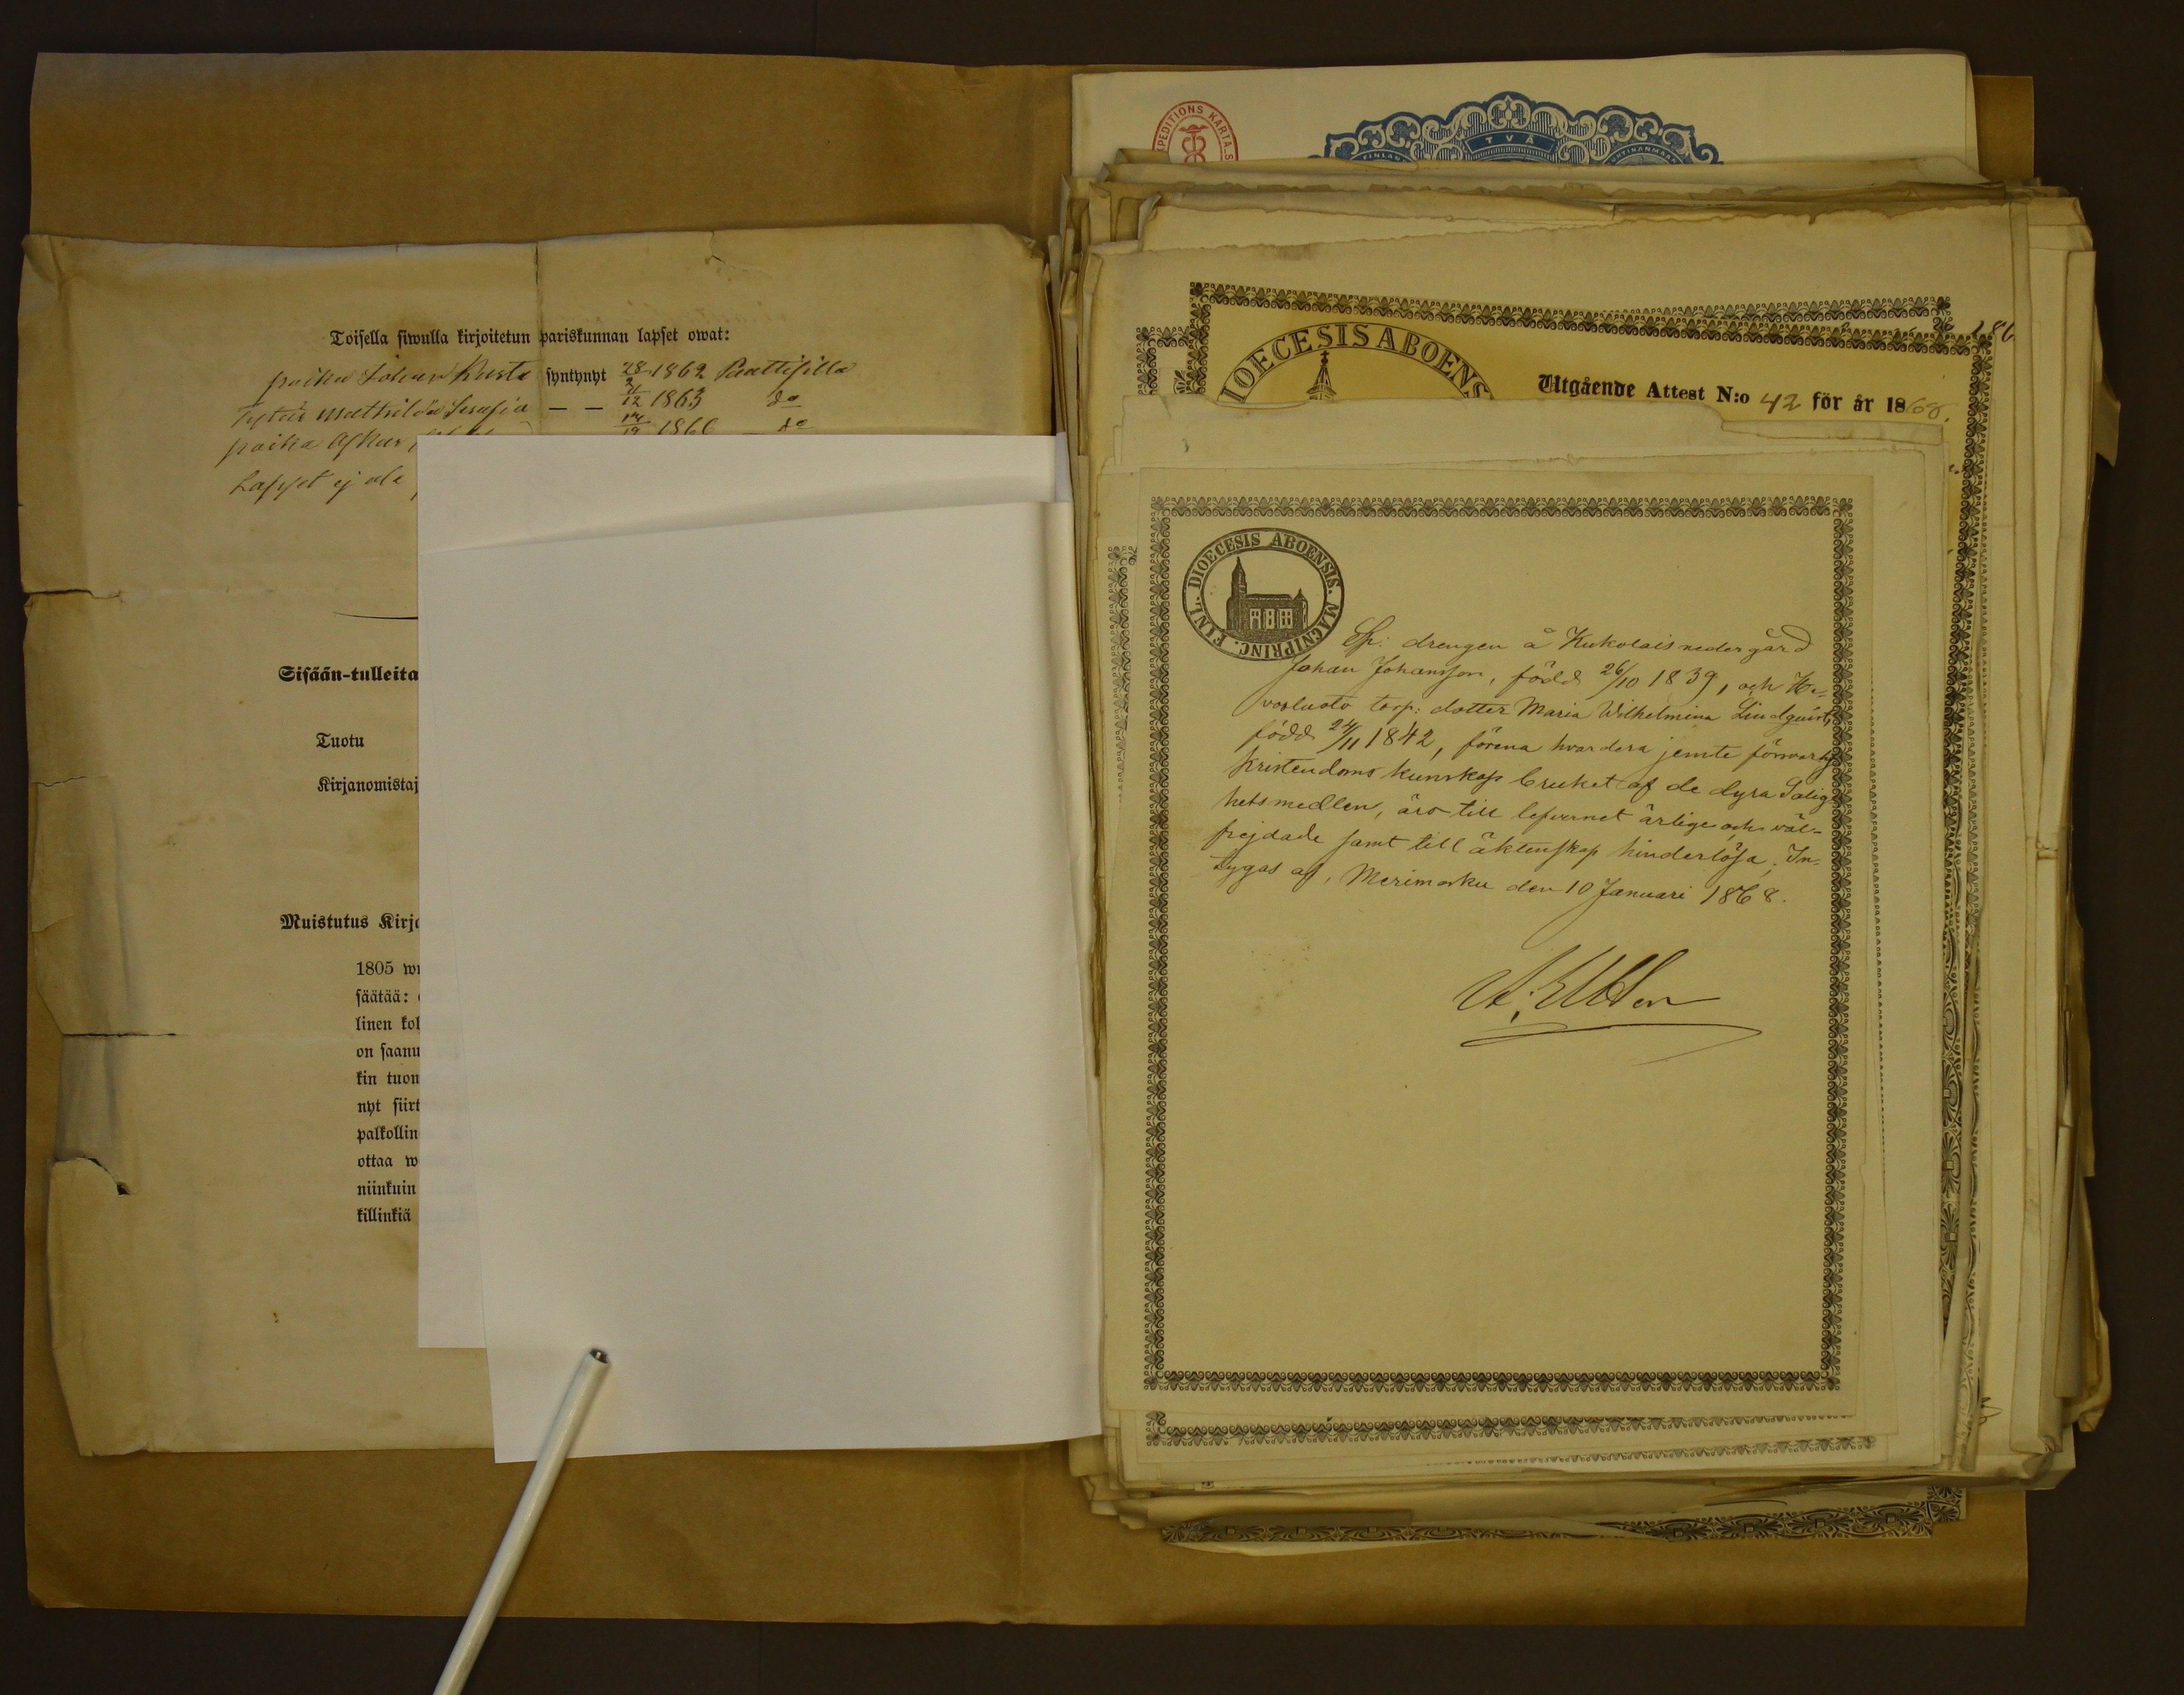 Toisella siwulla kirjoitetun pariskunnan lapset owat:
poika Johan Kusta syntynyt 28/2 1862 Paattisilla
Tytär Mathilda Serafia — — 11/12 1863 do
poika Oskar 1866 do
Lapset ej ole
Sisään-tulleita
Tuotu
Kirjanomistaj
Muistutus Kirja
1805 wu
säätää:
linen kol
on saanu
kin tuom
nyt siirt
palkollin
ottaa w
niinkuin
killinkiä
EXPEDITIONS KARTA.S
TVÅ
FINLAN
DIOECESIS ABOENS
Utgående Attest N:o 42 för år 1868.
FINL. DIOECESIS ABOENSIS. MAGNIPRINC.
Esp: drengen å Kukolais nedergård
Johan Johansson, född 26/10 1839, och He-
vooluoto torp: dotter Maria Wilhelmina Lindqvist,
född 24/11 1842, förena hvardera jemte försvarlig
kristendoms kunskap bruket af de dyra Salig-
hetsmedlen, äro till lefvernet ärlige och väl-
frejdade samt till äktenskap hinderlösa. In-
tygas af, Merimasku den 10 Januari 1868.